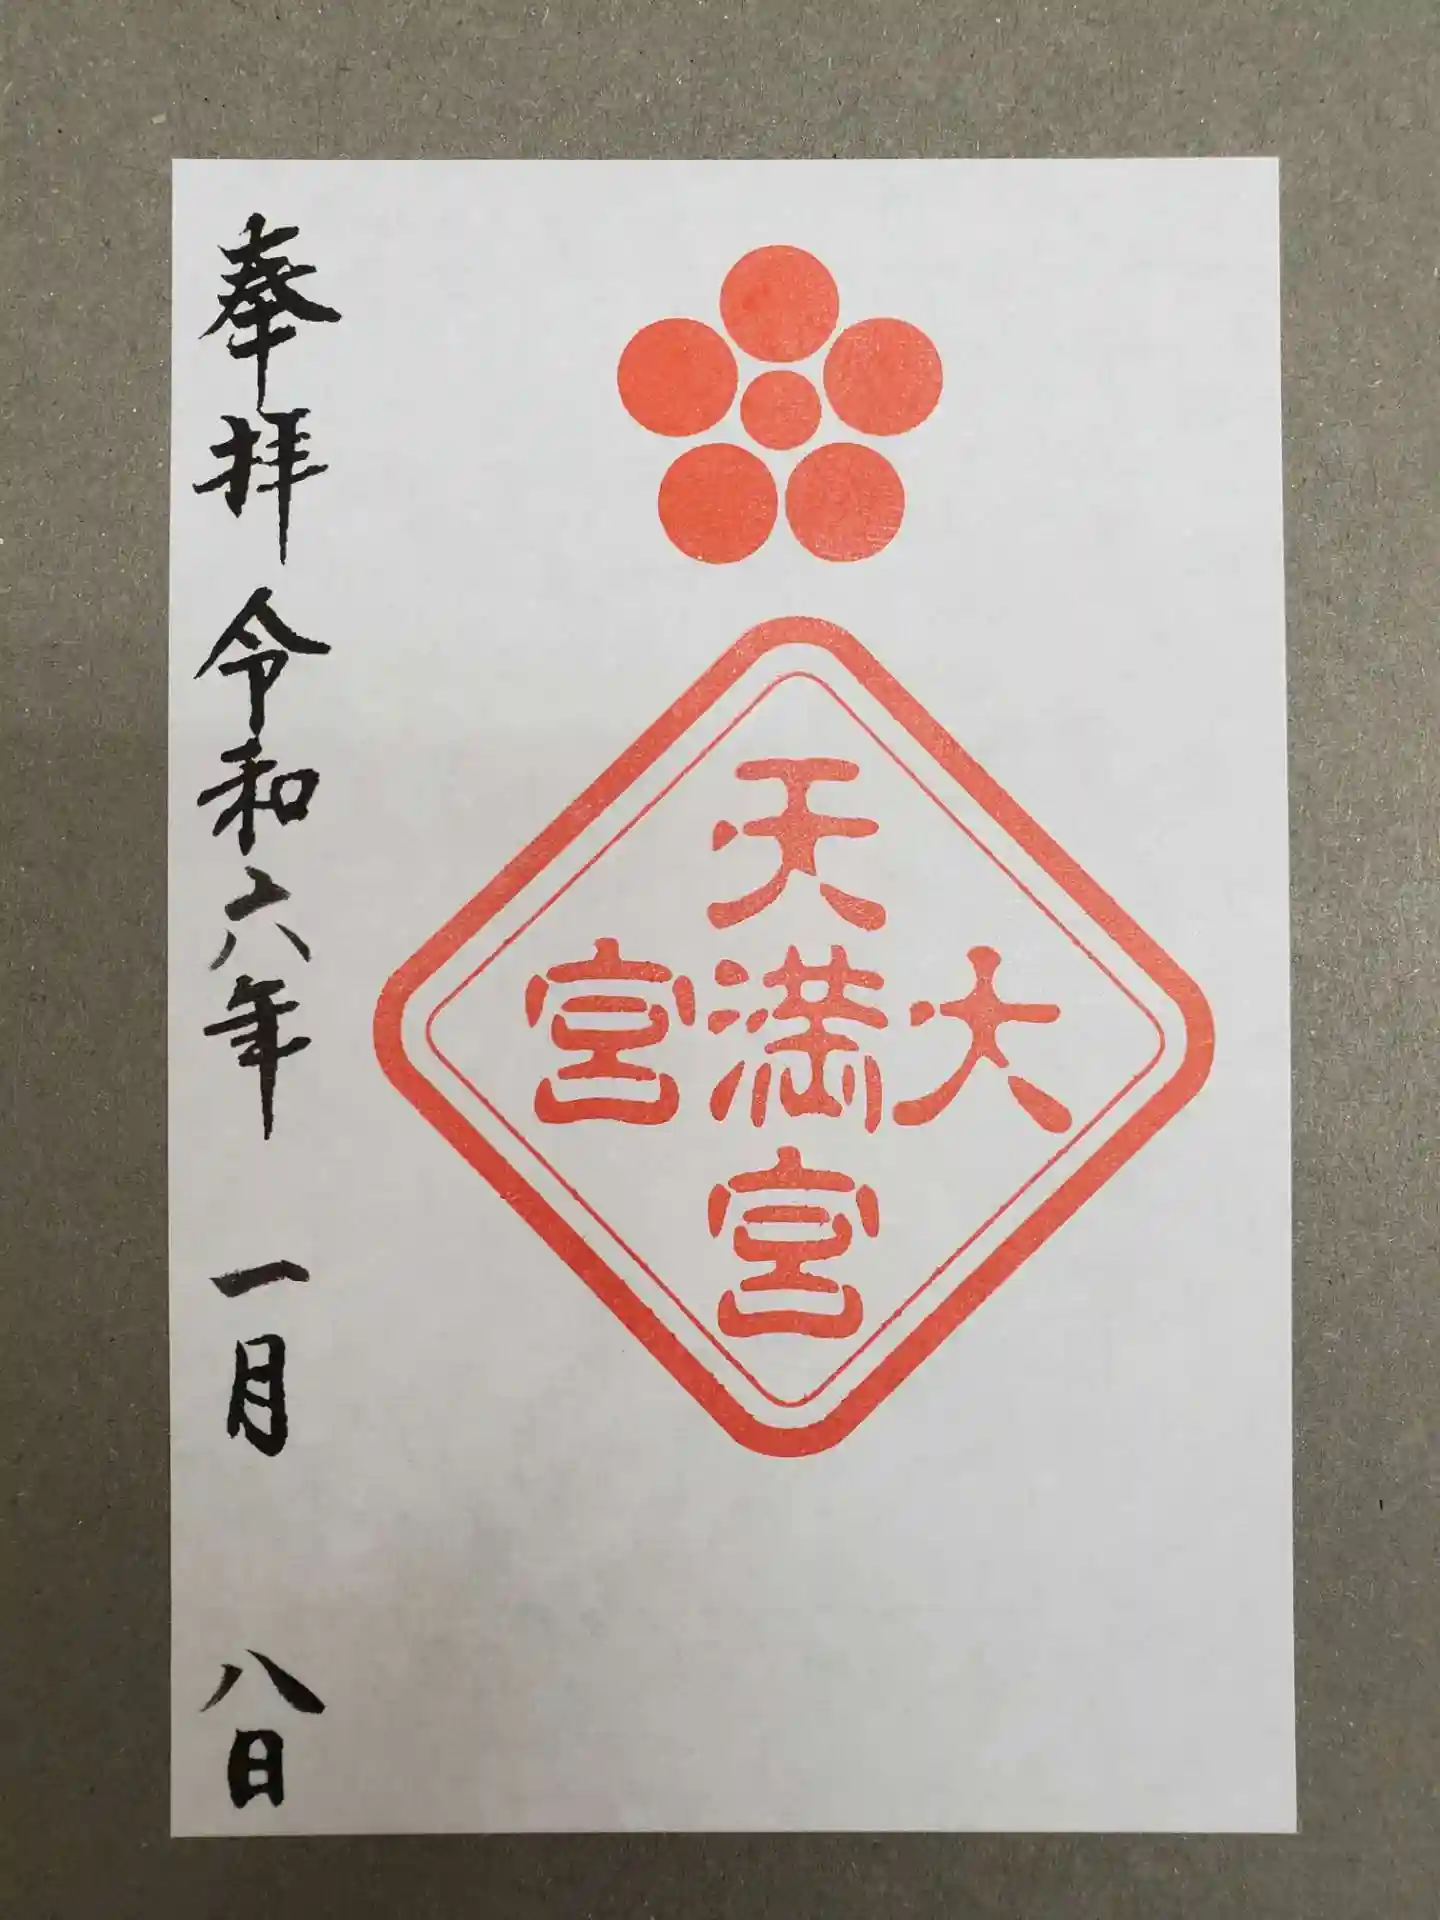 天満宮
大満宮
奉拝 令和六年 一月 八日